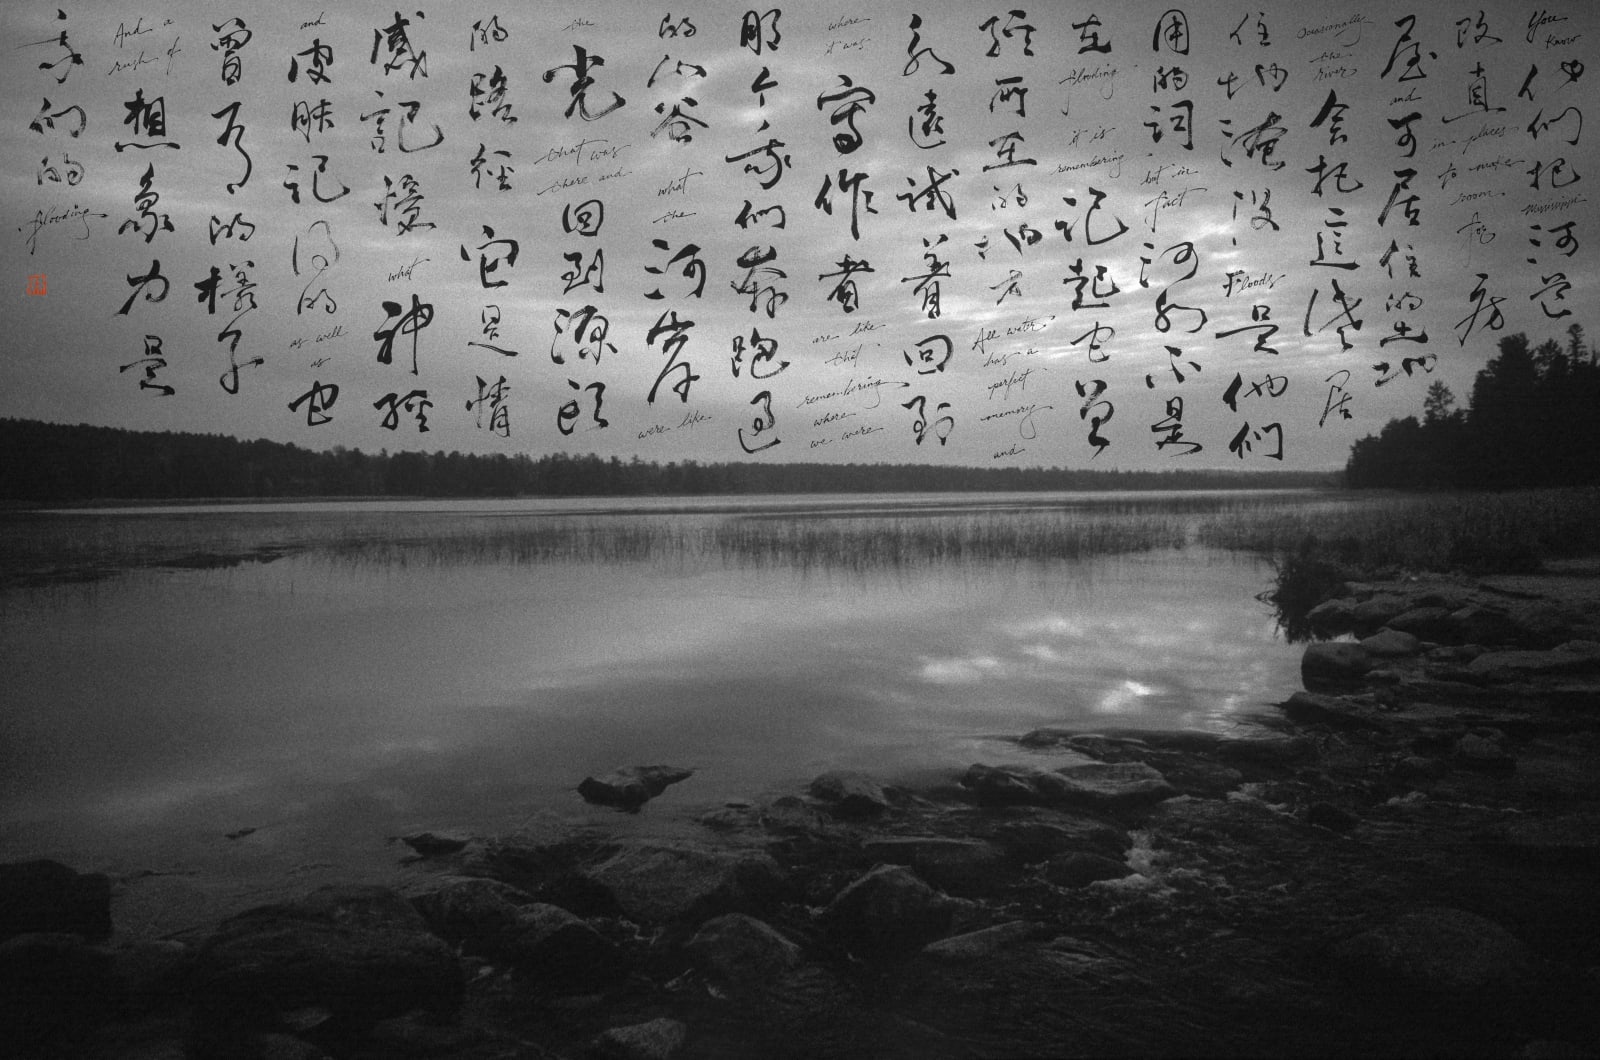 You know 他們把 Mississippi 河道
改直 in places to make room for 房
屋 and 可居住的土地
Occasionally the river 會把這些居
住地淹沒. Floods 是他們
用的詞, but in fact 河水不是
在 flooding it is remembering 記起它曾
經所在的地方 All water has a perfect memory and
永遠試著回到
where it was 寫作者 are like that remembering where we were
那个我們奔跑過
的山谷 what the 河岸 were like
the 光 that was there and 回到源頭
的路徑 它是情
感記憶 what 神經
and 皮膚記得的 as well as 它
曾有的樣子
And a rush of 想象力是
我們的 flooding.